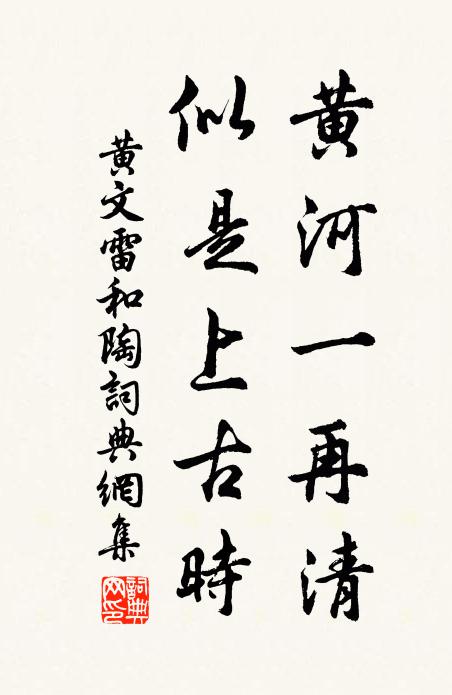 黃河一再清
似是上古時
黃文雷和陶詞典網集
詞典網印